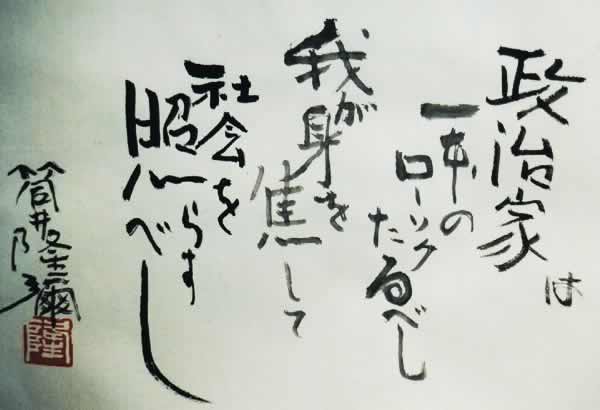 政治家は
一本のローソクたるべし
我が身を焦して
社会を
照らすべし
筒井隆彌
隆